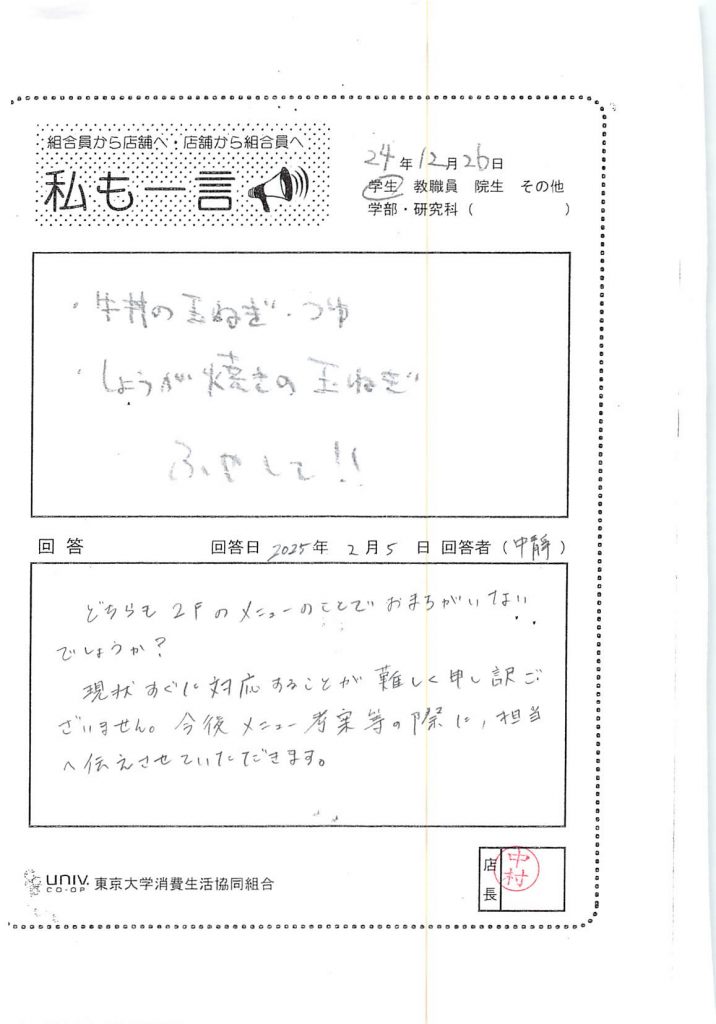 組合員から店舗へ・店舗から組合員へ
私も一言
24年12月26日
学生 教職員 院生 その他
学部・研究科（　　　　　）
・牛丼の玉ねぎ・つゆ
・しょうが焼きの玉ねぎ
ふやして!!
回答 回答日 2025年 2月5日 回答者（中静）
どちらも2Fのメニューのことでおまちがいない
でしょうか？
現状すぐに対応することが難しく申し訳ご
ざいません。今後メニュー考案等の際に、担当
へ伝えさせていただきます。
UNIV. CO-OP 東京大学消費生活協同組合
店長 中村